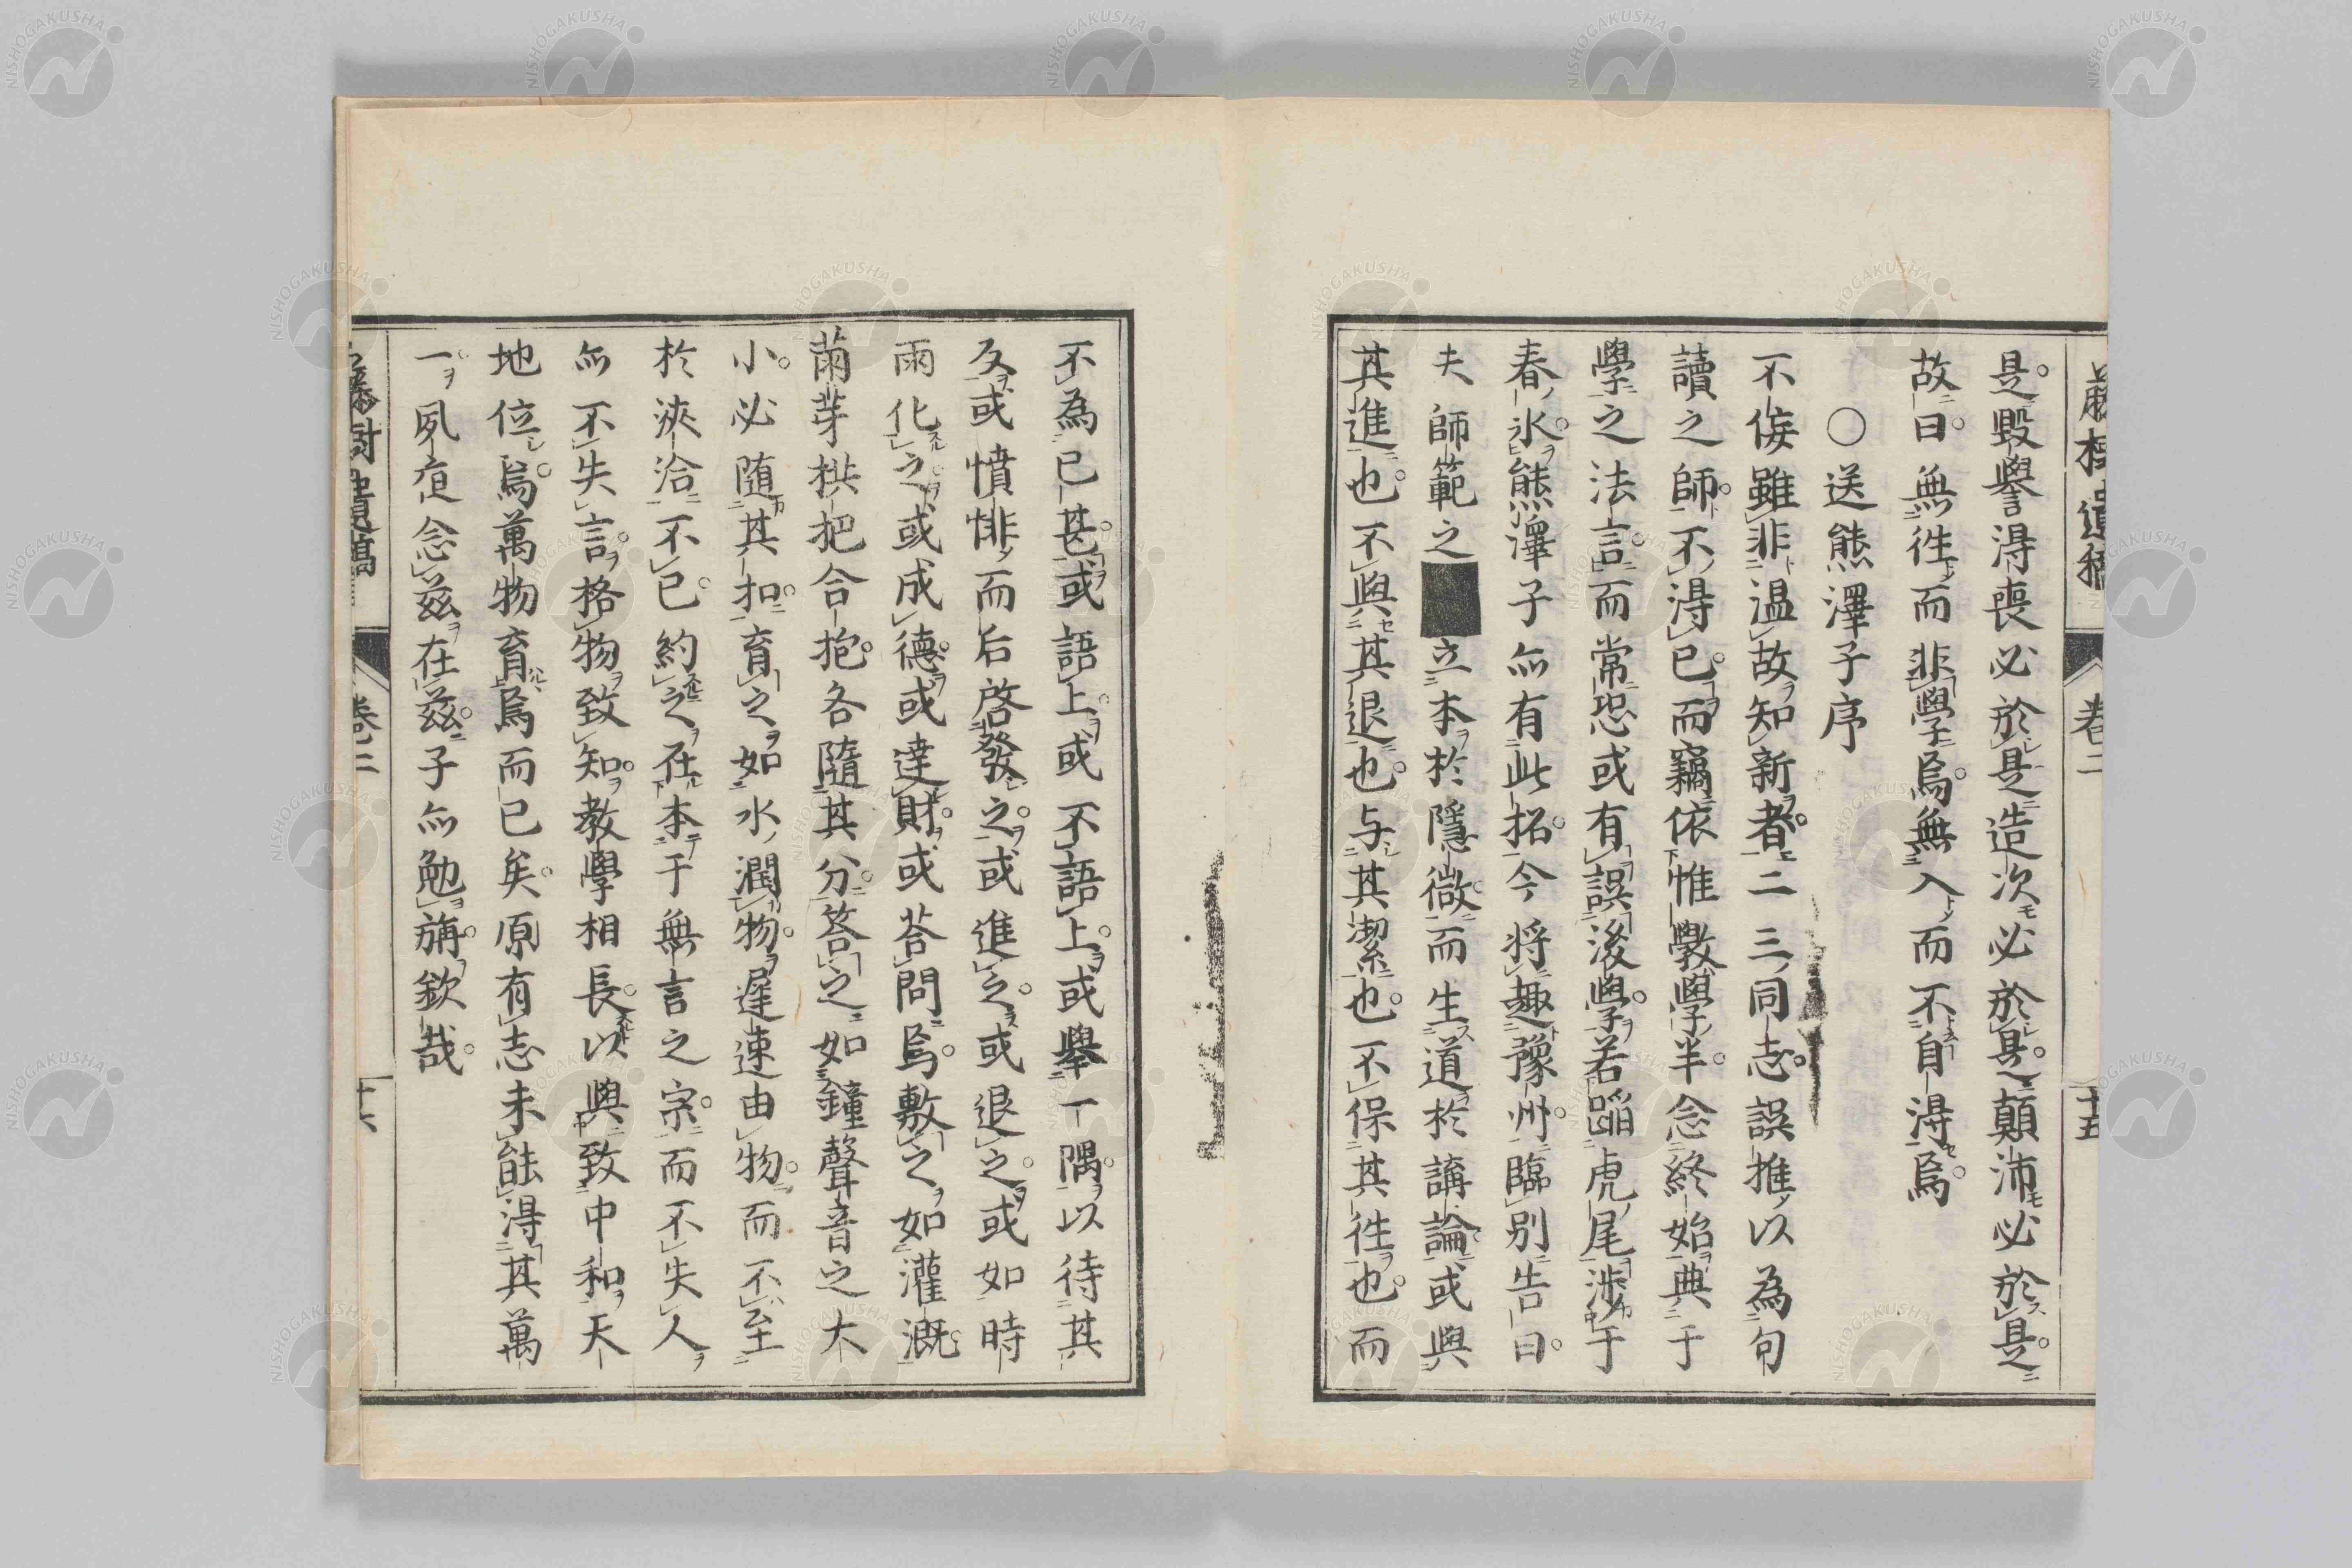 是毀譽得喪必於是造次必於是顚沛必於是
故曰無徃而非學焉無入而不自得焉
○送熊澤子序
不侫雖非温故知新者二三同志誤推以為句
讀之師不得已而竊依惟斆學半念終始典于
學之法言而常恐或有誤後學若蹈虎尾渉于
春氷熊澤子亦有此招今將趣豫州臨别告曰
夫師範之■立本於隱微而生道於講論或與
其進也不與其退也与其潔也不保其徃也而
不為已甚或語上或不語上或舉一隅以待其
反或憤悱而后啓發之或進之或退之或如時
雨化之或成德或達財或荅問焉敷之如灌漑
菌芽栱把合抱各隨其分答之如鐘聲音之大
小必随其扣育之如水潤物遲速由物而不至
於浹洽不已約之在本于無言之宗而不失人
亦不失言格物致知教學相長以與致中和天
地位焉萬物育焉而已矣原有志未能得其萬
一夙夜念茲在茲子亦勉旃欽哉
卷二
十五
卷二
十六